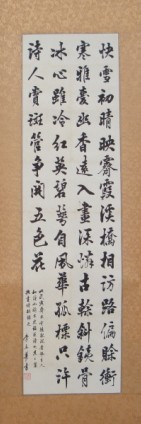 快雪初晴映霽霞溪橋相訪路偏賒衝
寒雅愛幽香遠入畫深憐古幹斜鐵骨
冰心雖冷紅英碧萼自風華孤標只許
詩人賞斑管爭開五色花